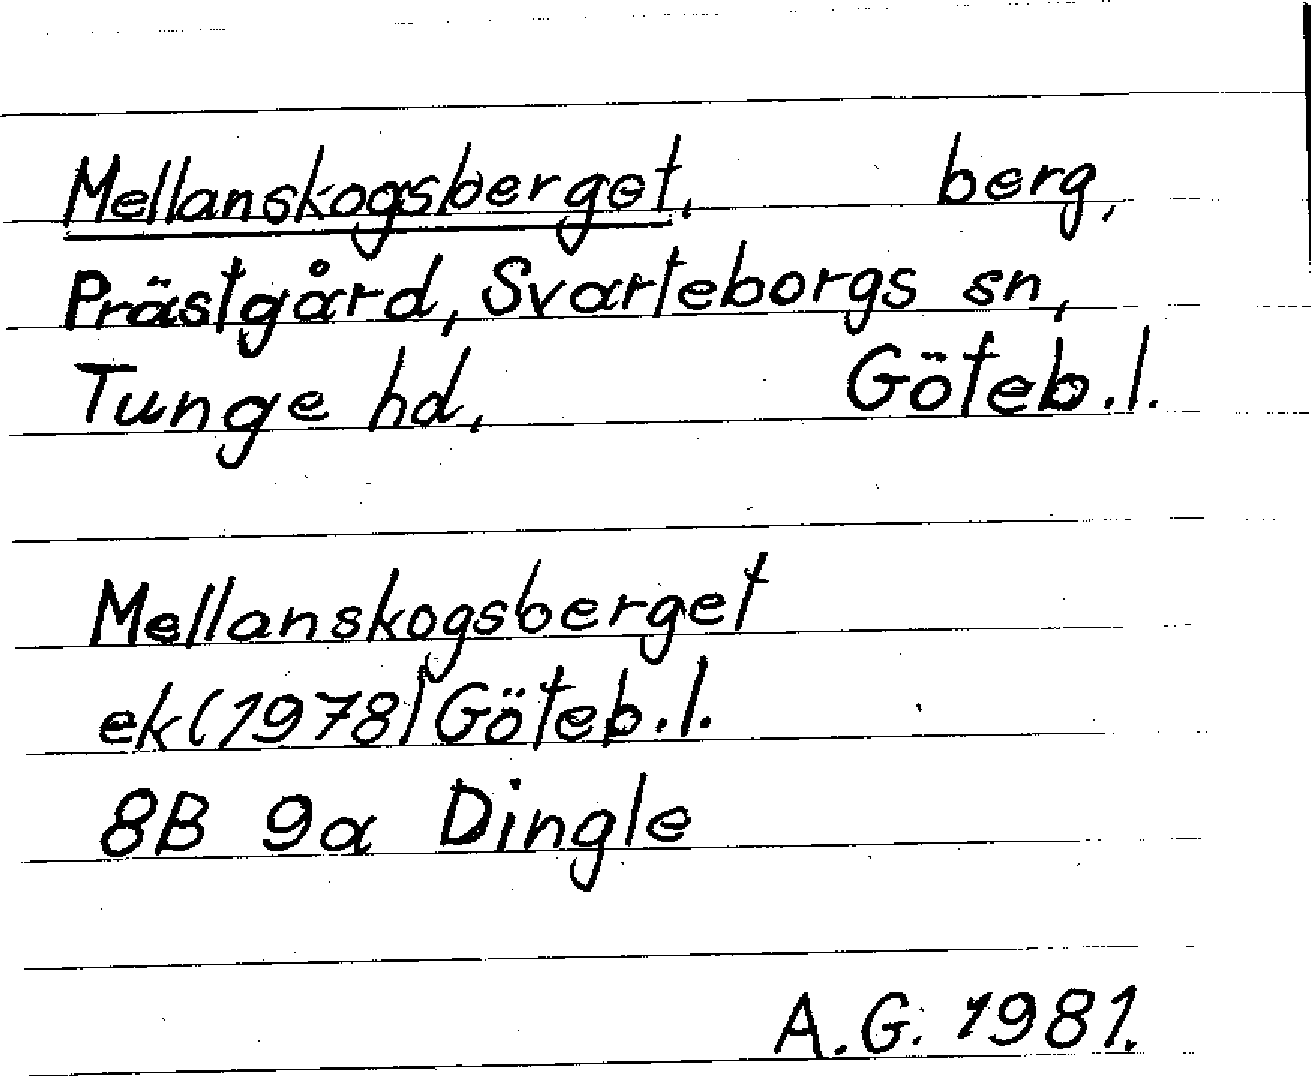 Mellanskogsberget, berg,
Prästgård, Svarteborgs sn,
Tunge hd, Göteb.l.
Mellanskogsberget
ek(1978) Göteb.l.
8B 9a Dingle
A.G. 1981.